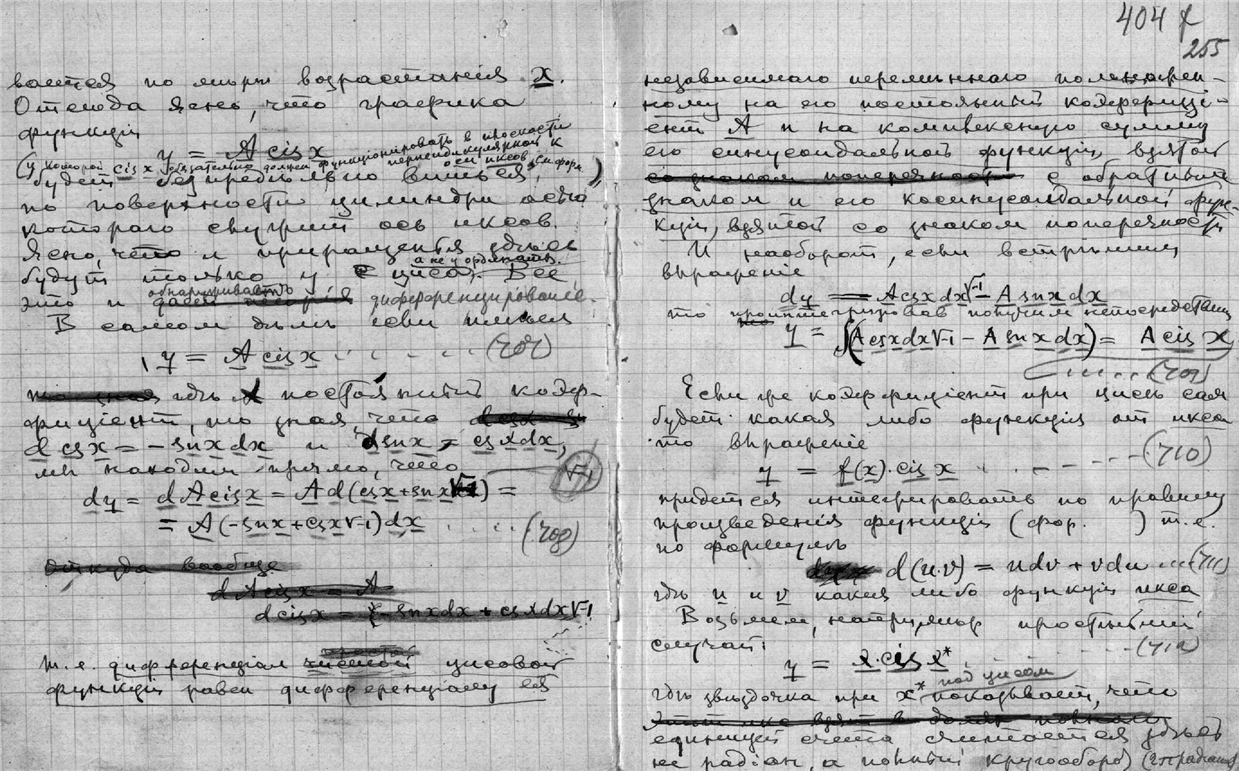 вается по мѣрѣ возрастанія x.
Отсюда ясно, что графика
функціи
y = A cis x
(у которой cis x обязательно долженъ функціонировать в плоскости перпендикулярной к оси иксов, см. фор. )
будет безпредѣльно виться
по поверхности цилиндра осью
котораго служит ось иксов.
Ясно, что и приращенія здѣсь
будут только у циса, а не у ординаты. Все
это и обнаруживает дифференцированіе.
В самом дѣлѣ если имѣем
y = A cis x . . . . . . (707)
гдѣ A постоянный коэф-
фиціент, то зная что
d cs x = - sn x dx и d sn x = cs x dx,
мы находим прямо, что
dy = d A cis x = A d (cs x + sn x √-1) =
= A (- sn x + cs x √-1) dx . . . . (708)
откуда вообще
d A cis x = A
d cis x = { - sn x dx + cs x dx √-1
т.е. дифференціал цисовой
функціи равен дифференціалу ея
404
255
независимаго перемѣннаго
ному на его постоянный коэффиці-
ент A и на комплексную сумму
его синусоидальной функціи, взятой
с обратным
знаком и его косинусоидальной фун-
кціи, взятой со знаком поперечности
И наоборот, если встрѣтим
выраженіе
dy = A cs x dx √-1 - A sn x dx
то проинтегрировав получим непосредственно
y = ∫(A cs x dx √-1 - A sn x dx) = A cis x
. . . . . (709)
Если же коэффиціент при цисѣ сам
будет какая либо функція от икса
то выраженіе
y = f(x) · cis x . . . . . . (710)
придется интегрировать по правилу
произведенія функцій (фор. ) т.е.
по формулѣ
d(u·v) = u dv + v du ... (711)
гдѣ u и v какія либо функціи икса
Возьмем, напримѣр простѣйшій
случай:
y = x · cis x* . . . . (712)
гдѣ звѣздочка при x* под цисом показывает, что
единицей счета считается здѣсь
не радіан, а полный кругооборот (2π радіанов)